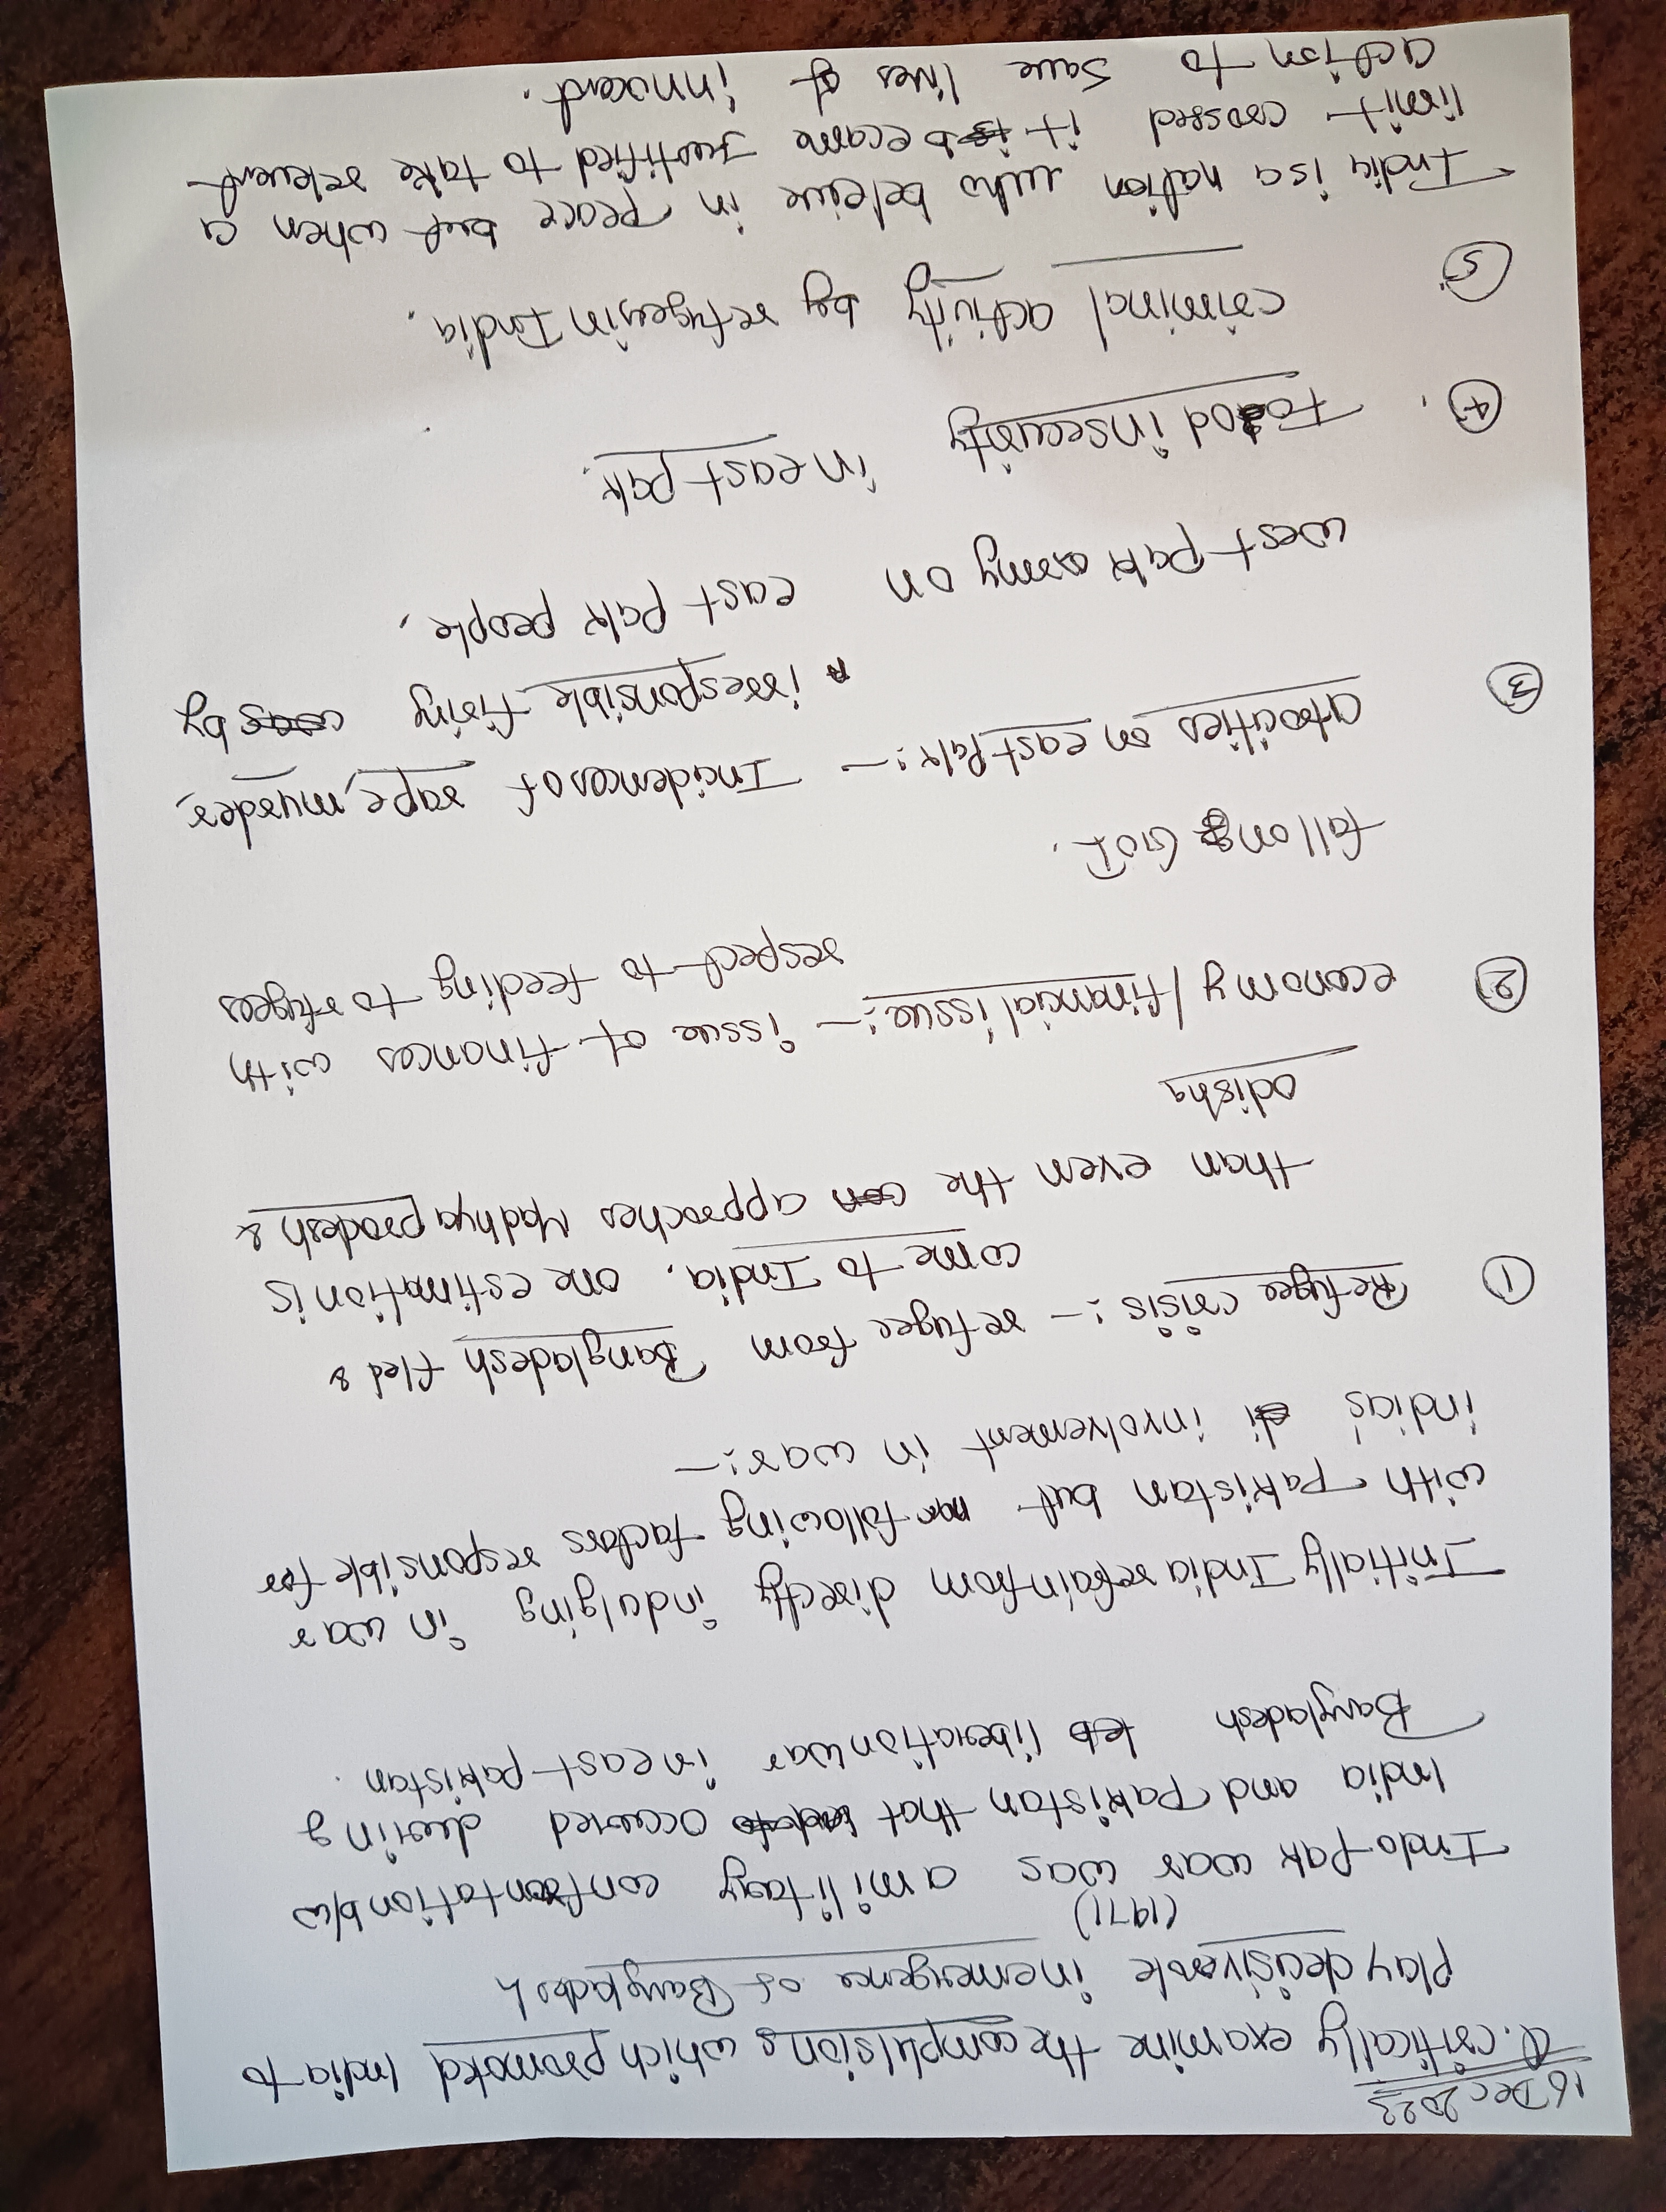 16 Dec 2023
Q. critically examine the compulsions which promoted India to
play decisive role in emergence of Bangladesh
(1971)
Indo Pak war was a military confrontation b/w
India and Pakistan that occurred during
Bangladesh liberation war in east pakistan.
Initially India refrain from directly indulging in war
with Pakistan but following factors responsible for
india's involvement in war:-
① Refugee crisis :- refugee from Bangladesh fled &
come to India. one estimation is
than even the approches Madhya pradesh &
odisha
② economy / financial issue:- issue of finances with
respect to feeding to refugees
fall on GoI.
③ atrocities on east Pak:- Incidences of rape, murder,
irresponsible firing by
west Pak army on east Pak people.
④. Food insecurity in east pak.
⑤ criminal activity by refugees in India.
India is a nation who beleive in peace but when a
limit crossed it became justified to take relevent
action to save lives of innocent.